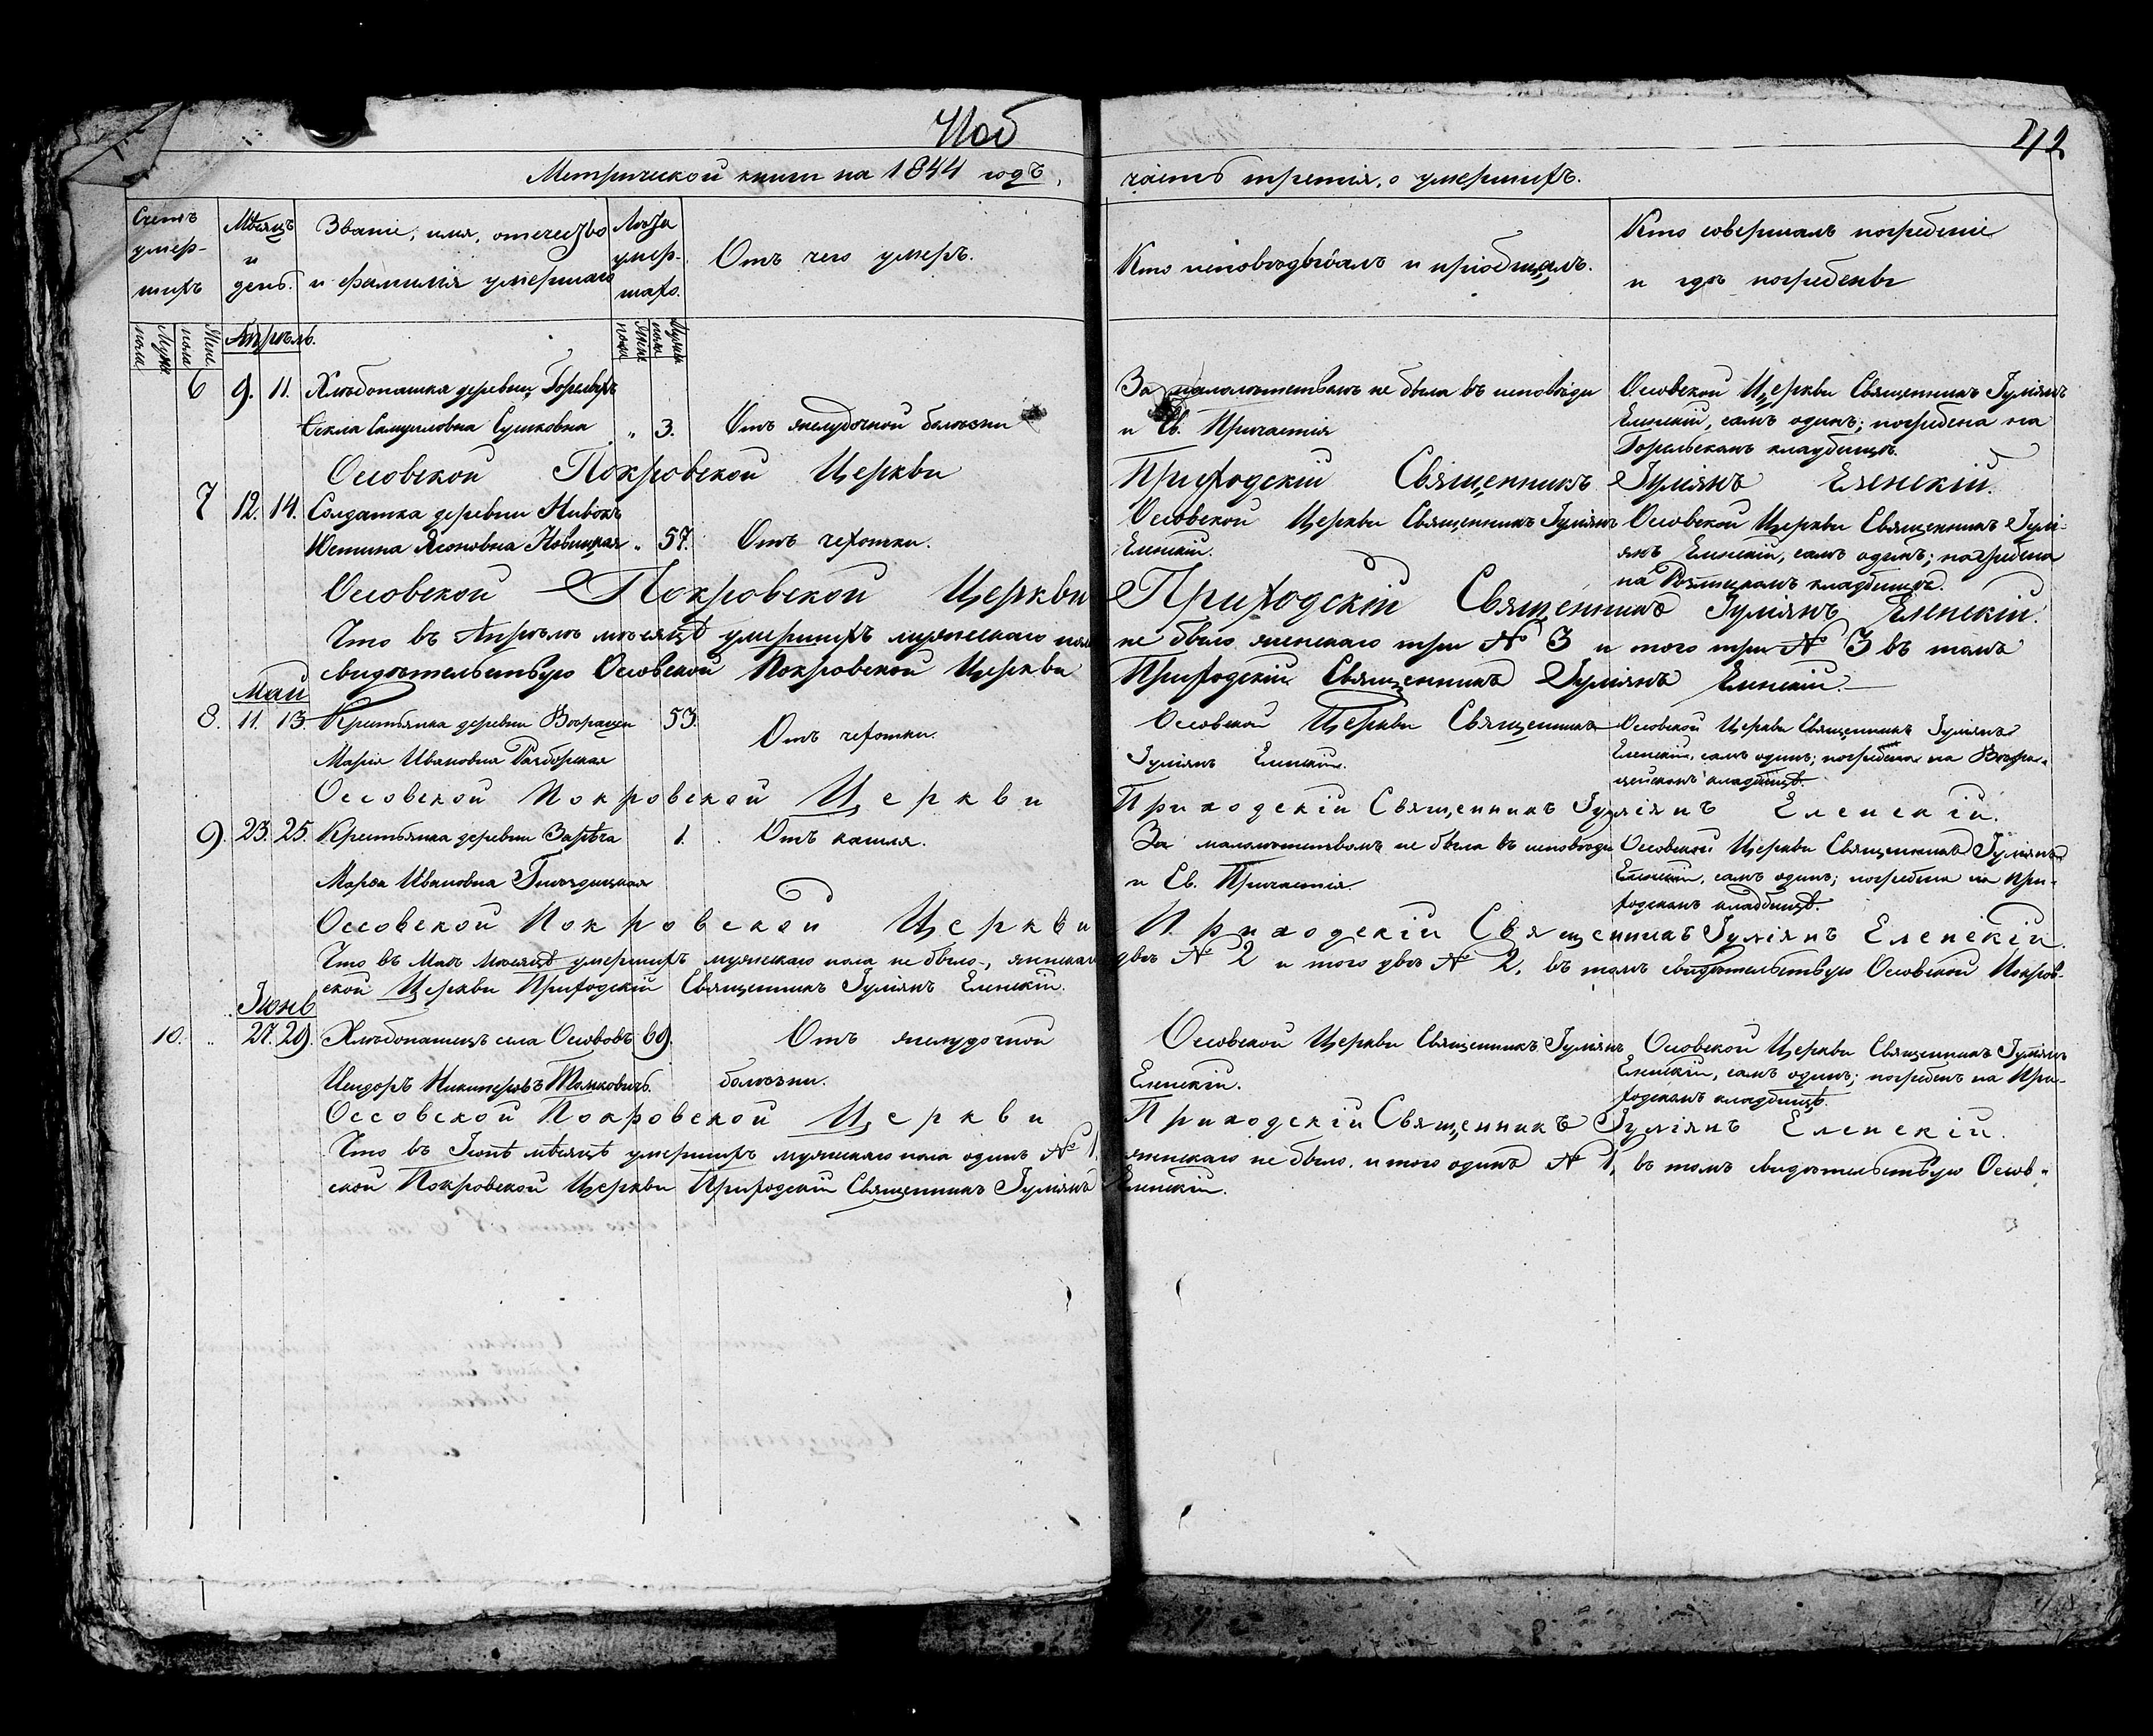 412
Метрической книги на 1844 годъ, часть третія, о умершихъ.
Счетъ умер-шихъ
Мѣсяцъ и день.
Званіе, имя, отечество и фамилія умершаго
Лѣта умер-шаго.
Отъ чего умеръ.
Кто исповѣдывалъ и пріобщалъ.
Кто совершалъ погребеніе и гдѣ погребены
Муж пола
Жен пола
Апрѣль.
6 9. 11. Хлѣбопашка деревни
Ѳекла Самуиловна Сушковна " 3. Отъ желудочной болѣзни
За малолѣтствомъ не была въ исповѣди
и Св. Причастія
Осовской Церкви Священникъ Іуліянъ
Еленскій, самъ одинъ; погребена на
кладбищѣ.
Оссовской Покровской Церкви Приходскій Священникъ Іуліянъ Еленскій.
7 12. 14. Солдатка деревни Нивокъ
Юстина Новицкая " 57. Отъ чехотки.
Осовской Церкви Священникъ Іуліянъ
Еленскій.
Осовской Церкви Священникъ Іулі-
янъ Еленскій, самъ одинъ; погребена
на кладбищѣ.
Оссовской Покровской Церкви Приходскій Священникъ Іуліянъ Еленскій.
Что въ Апрѣлѣ мѣсяцѣ умершихъ мужескаго пола не было женскаго три № 3 и того три № 3 въ томъ
свидѣтельствую Осовской Покровской Церкви Приходскій Священникъ Іуліянъ Еленскій.
Май
8. 11. 13. Крестьянка деревни 53.
Марія Ивановна Отъ чехотки.
Осовской Церкви Священникъ
Іуліянъ Еленскій.
Осовской Церкви Священникъ Іуліянъ
Еленскій, самъ одинъ; погребена на
кладбищѣ.
Оссовской Покровской Церкви Приходскій Священникъ Іуліянъ Еленскій.
9. 23. 25. Крестьянка деревни Зарѣча 1. Отъ кашля.
Марѳа Ивановна Гнѣздицкая
За малолѣтствомъ не была въ исповѣди
и Св. Причастія.
Осовской Церкви Священникъ Іуліянъ
Еленскій, самъ одинъ; погребена на При-
ходскомъ кладбищѣ.
Оссовской Покровской Церкви Приходскій Священникъ Іуліянъ Еленскій.
Что въ Маѣ мѣсяцѣ умершихъ мужескаго пола не было, женскаго двѣ № 2 и того двѣ № 2, въ томъ свидѣтельствую Осовской Покров-
ской Церкви Приходскій Священникъ Іуліянъ Еленскій.
Іюнь
10. " 27. 29. Хлѣбопашецъ села Осововъ 69. Отъ желудочной
Исидоръ Томковичъ. болѣзни.
Осовской Церкви Священникъ Іуліянъ
Еленскій.
Осовской Церкви Священникъ Іуліянъ
Еленскій, самъ одинъ; погребенъ на При-
ходскомъ кладбищѣ.
Оссовской Покровской Церкви Приходскій Священникъ Іуліянъ Еленскій.
Что въ Іюнѣ мѣсяцѣ умершихъ мужескаго пола одинъ № 1, женскаго не было. и того одинъ № 1, въ томъ свидѣтельствую Осов-
ской Покровской Церкви Приходскій Священникъ Іуліянъ Еленскій.